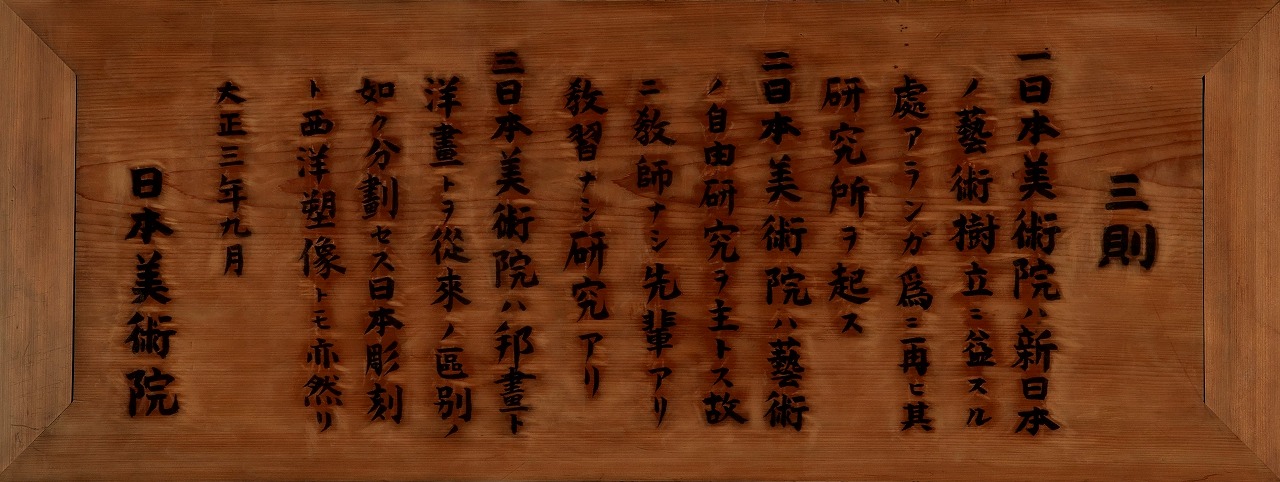 三則
一日本美術院ハ新日本
ノ藝術樹立ニ益スル
處アランガ爲ニ再ヒ其
研究所ヲ起ス
二日本美術院ハ藝術
ノ自由研究ヲ主トス故
ニ敎師ナシ先輩アリ
敎習ナシ研究アリ
三日本美術院ハ邦畫ト
洋畫トヲ從來ノ區別ノ
如ク分劃セス日本彫刻
ト西洋塑像トモ亦然リ
大正三年九月
日本美術院